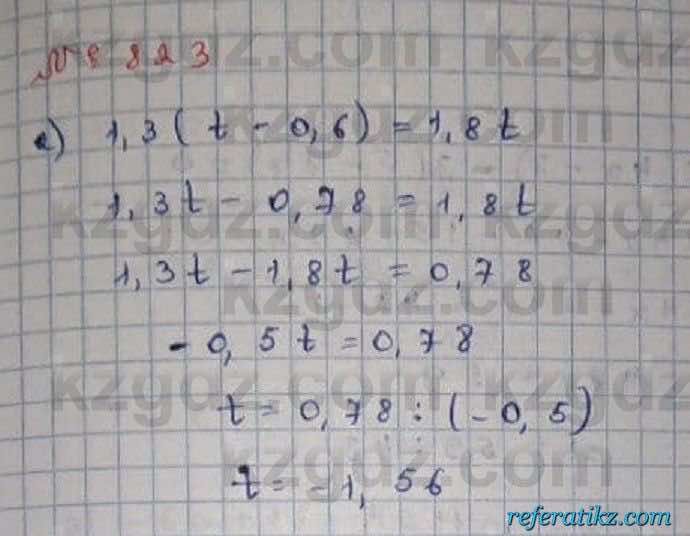 № 823
kzgdz.com
а) 1,3(t - 0,6) = 1,8t
1,3t - 0,78 = 1,8t
kzgdz.com
1,3t - 1,8t = 0,78
kzgdz.com
- 0,5t = 0,78
kzgdz.com
t = 0,78 : (-0,5)
kzgdz.com
t = -1,56
referatikz.com